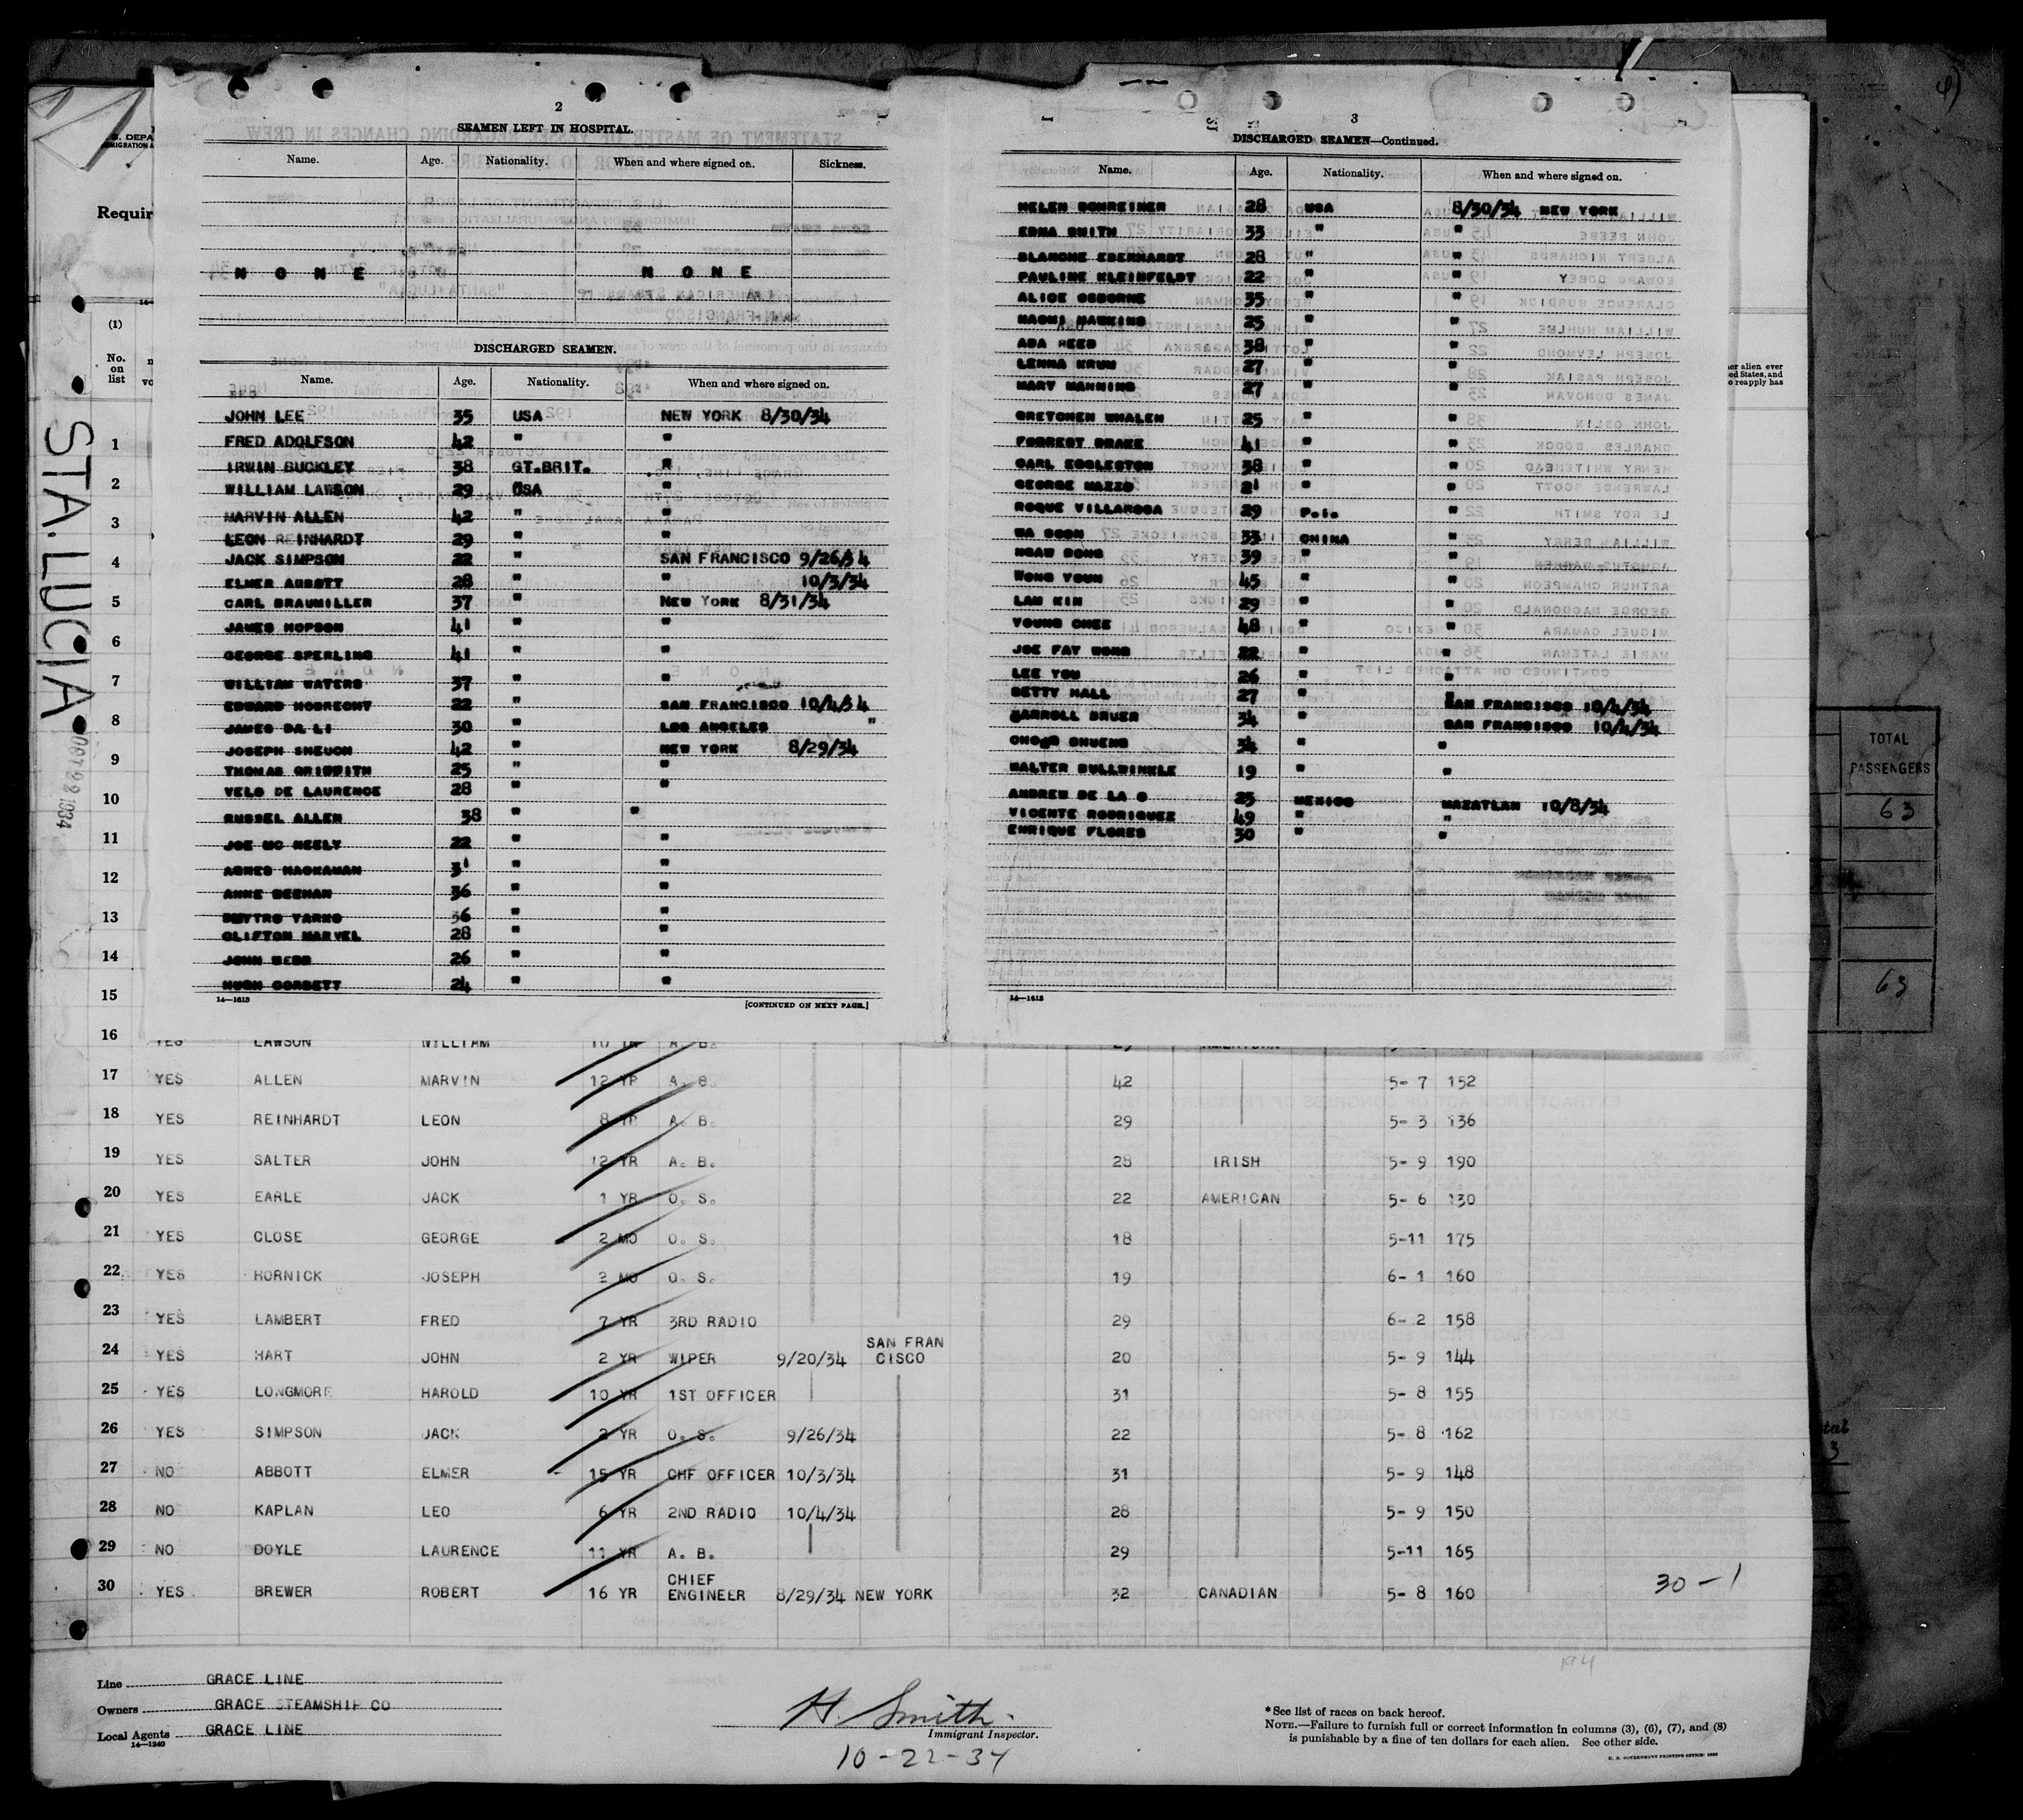 2
SEAMEN LEFT IN HOSPITAL.
Name. Age. Nationality. When and where signed on. Sickness.
N O N E N O N E
DISCHARGED SEAMEN.
Name. Age. Nationality. When and where signed on.
JOHN LEE 35 USA NEW YORK 8/30/34
FRED ADOLFSON 42 " "
IRWIN BUCKLEY 38 GT.BRIT. "
WILLIAM LAWSON 29 USA "
MARVIN ALLEN 42 " "
LEON REINHARDT 29 " "
JACK SIMPSON 22 " SAN FRANCISCO 9/26/34
ELMER ABBOTT 28 " " 10/3/34
CARL BRAUMILLER 37 " NEW YORK 8/31/34
JAMES HOPSON 41 " "
GEORGE SPERLING 41 " "
WILLIAM WATERS 37 " "
EDWARD HOBRECHT 22 " SAN FRANCISCO 10/4/34
JAMES DA LI 30 " LOS ANGELES "
JOSEPH SHEUCH 42 " NEW YORK 8/29/34
THOMAS GRIFFITH 25 " "
VELO DE LAURENCE 28 " "
RUSSEL ALLEN 38 " "
JOE MC NEELY 22 " "
AGNES HACKAMAN 31 " "
ANNE BEEMAN 36 " "
DMYTRO YARKO 36 " "
CLIFTON MARVEL 28 " "
JOHN WEBB 26 " "
HUGH CORBETT 24 " "
14—1613 [CONTINUED ON NEXT PAGE.]
3
DISCHARGED SEAMEN—Continued.
Name. Age. Nationality. When and where signed on.
HELEN SCHREINER 28 USA 8/30/34 NEW YORK
EDNA SMITH 33 " "
BLANCHE EBERHARDT 28 " "
PAULINE KLEINFELDT 22 " "
ALICE OSBORNE 35 " "
NAOMI HAWKINS 25 " "
ADA REED 38 " "
LENNA KRUM 27 " "
MARY MANNING 27 " "
GRETCHEN WHALEN 25 " "
FORREST DRAKE 41 " "
CARL EGGLESTON 38 " "
GEORGE MAZZO 21 " "
ROQUE VILLAROSA 29 P.I. "
WA SOON 33 CHINA "
NGAW DONG 39 " "
WONG YOUN 45 " "
LAM KIN 29 " "
YOUNG CHEE 48 " "
JOE FAY WONG 22 " "
LEE YOU 26 " "
BETTY HALL 27 " SAN FRANCISCO 10/4/34
CARROLL BRUER 34 " SAN FRANCISCO 10/4/34
CHUENG 34 " "
WALTER BULLWINKLE 19 " "
ANDREW DE LA O 25 MEXICO MAZATLAN 10/8/34
VICENTE RODRIQUEZ 49 " "
ENRIQUE FLORES 30 " "
14—1613
STA. LUCIA
OCT 22 1934
Requir
(1)
No. on list
1
2
3
4
5
6
7
8
9
10
11
12
13
14
15
16 YES LAWSON WILLIAM 10 YR A. B. 29 AMERICAN
17 YES ALLEN MARVIN 12 YR A. B. 42 5- 7 152
18 YES REINHARDT LEON 8 YR A. B. 29 5- 3 136
19 YES SALTER JOHN 12 YR A. B. 28 IRISH 5- 9 190
20 YES EARLE JACK 1 YR O. S. 22 AMERICAN 5- 6 130
21 YES CLOSE GEORGE 2 MO O. S. 18 5-11 175
22 YES HORNICK JOSEPH 2 MO O. S. 19 6- 1 160
23 YES LAMBERT FRED 7 YR 3RD RADIO 29 6- 2 158
24 YES HART JOHN 2 YR WIPER 9/20/34 SAN FRAN CISCO 20 5- 9 144
25 YES LONGMORE HAROLD 10 YR 1ST OFFICER 31 5- 8 155
26 YES SIMPSON JACK 2 YR O. S. 9/26/34 22 5- 8 162
27 NO ABBOTT ELMER 15 YR CHF OFFICER 10/3/34 31 5- 9 148
28 NO KAPLAN LEO 6 YR 2ND RADIO 10/4/34 28 5- 9 150
29 NO DOYLE LAURENCE 11 YR A. B. 29 5-11 165
30 YES BREWER ROBERT 16 YR CHIEF ENGINEER 8/29/34 NEW YORK 32 CANADIAN 5- 8 160
30 - 1
Line GRACE LINE
Owners GRACE STEAMSHIP CO
Local Agents GRACE LINE
14—1240
H. Smith.
Immigrant Inspector.
10-22-34
*See list of races on back hereof.
NOTE.—Failure to furnish full or correct information in columns (3), (6), (7), and (8)
is punishable by a fine of ten dollars for each alien. See other side.
TOTAL
PASSENGERS
63
63